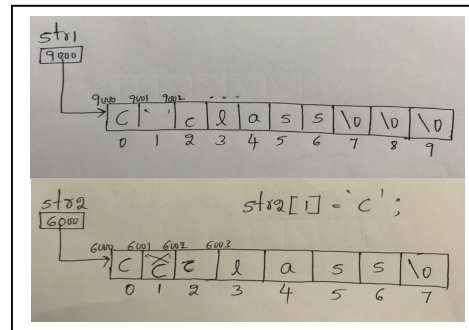 str1
9000
9000 9001 9002 ...
C ' ' c l a s s \0 \0 \0
0 1 2 3 4 5 6 7 8 9
str2
str2[1] = 'C';
6000
6000 6001 6002 6003
C C c l a s s \0
0 1 2 3 4 5 6 7